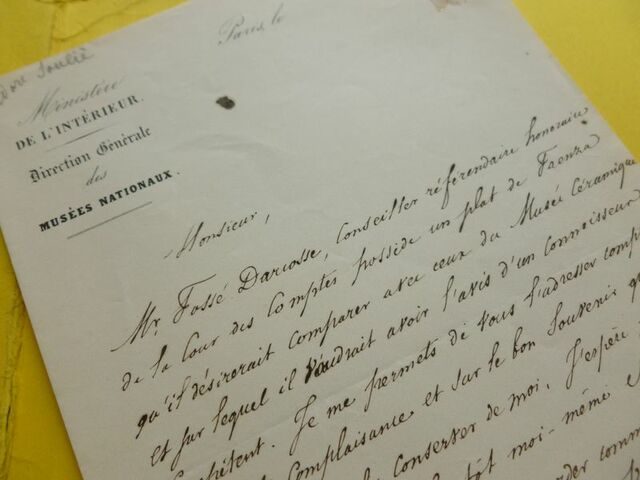 Soulié
Paris, le
Ministère
DE L'INTÉRIEUR.
Direction Générale
des
MUSÉES NATIONAUX.
Monsieur,
Mr. Fossé Darcosse, Conseiller référendaire honoraire
de la Cour des Comptes possède un plat de Faenza
qu'il désirerait comparer avec ceux du Musée Céramique
et sur lequel il voudrait avoir l'avis d'un connaisseur
Je me permets de vous l'adresser
complaisance et sur le bon souvenir
conserver de moi, J'espère
moi-même